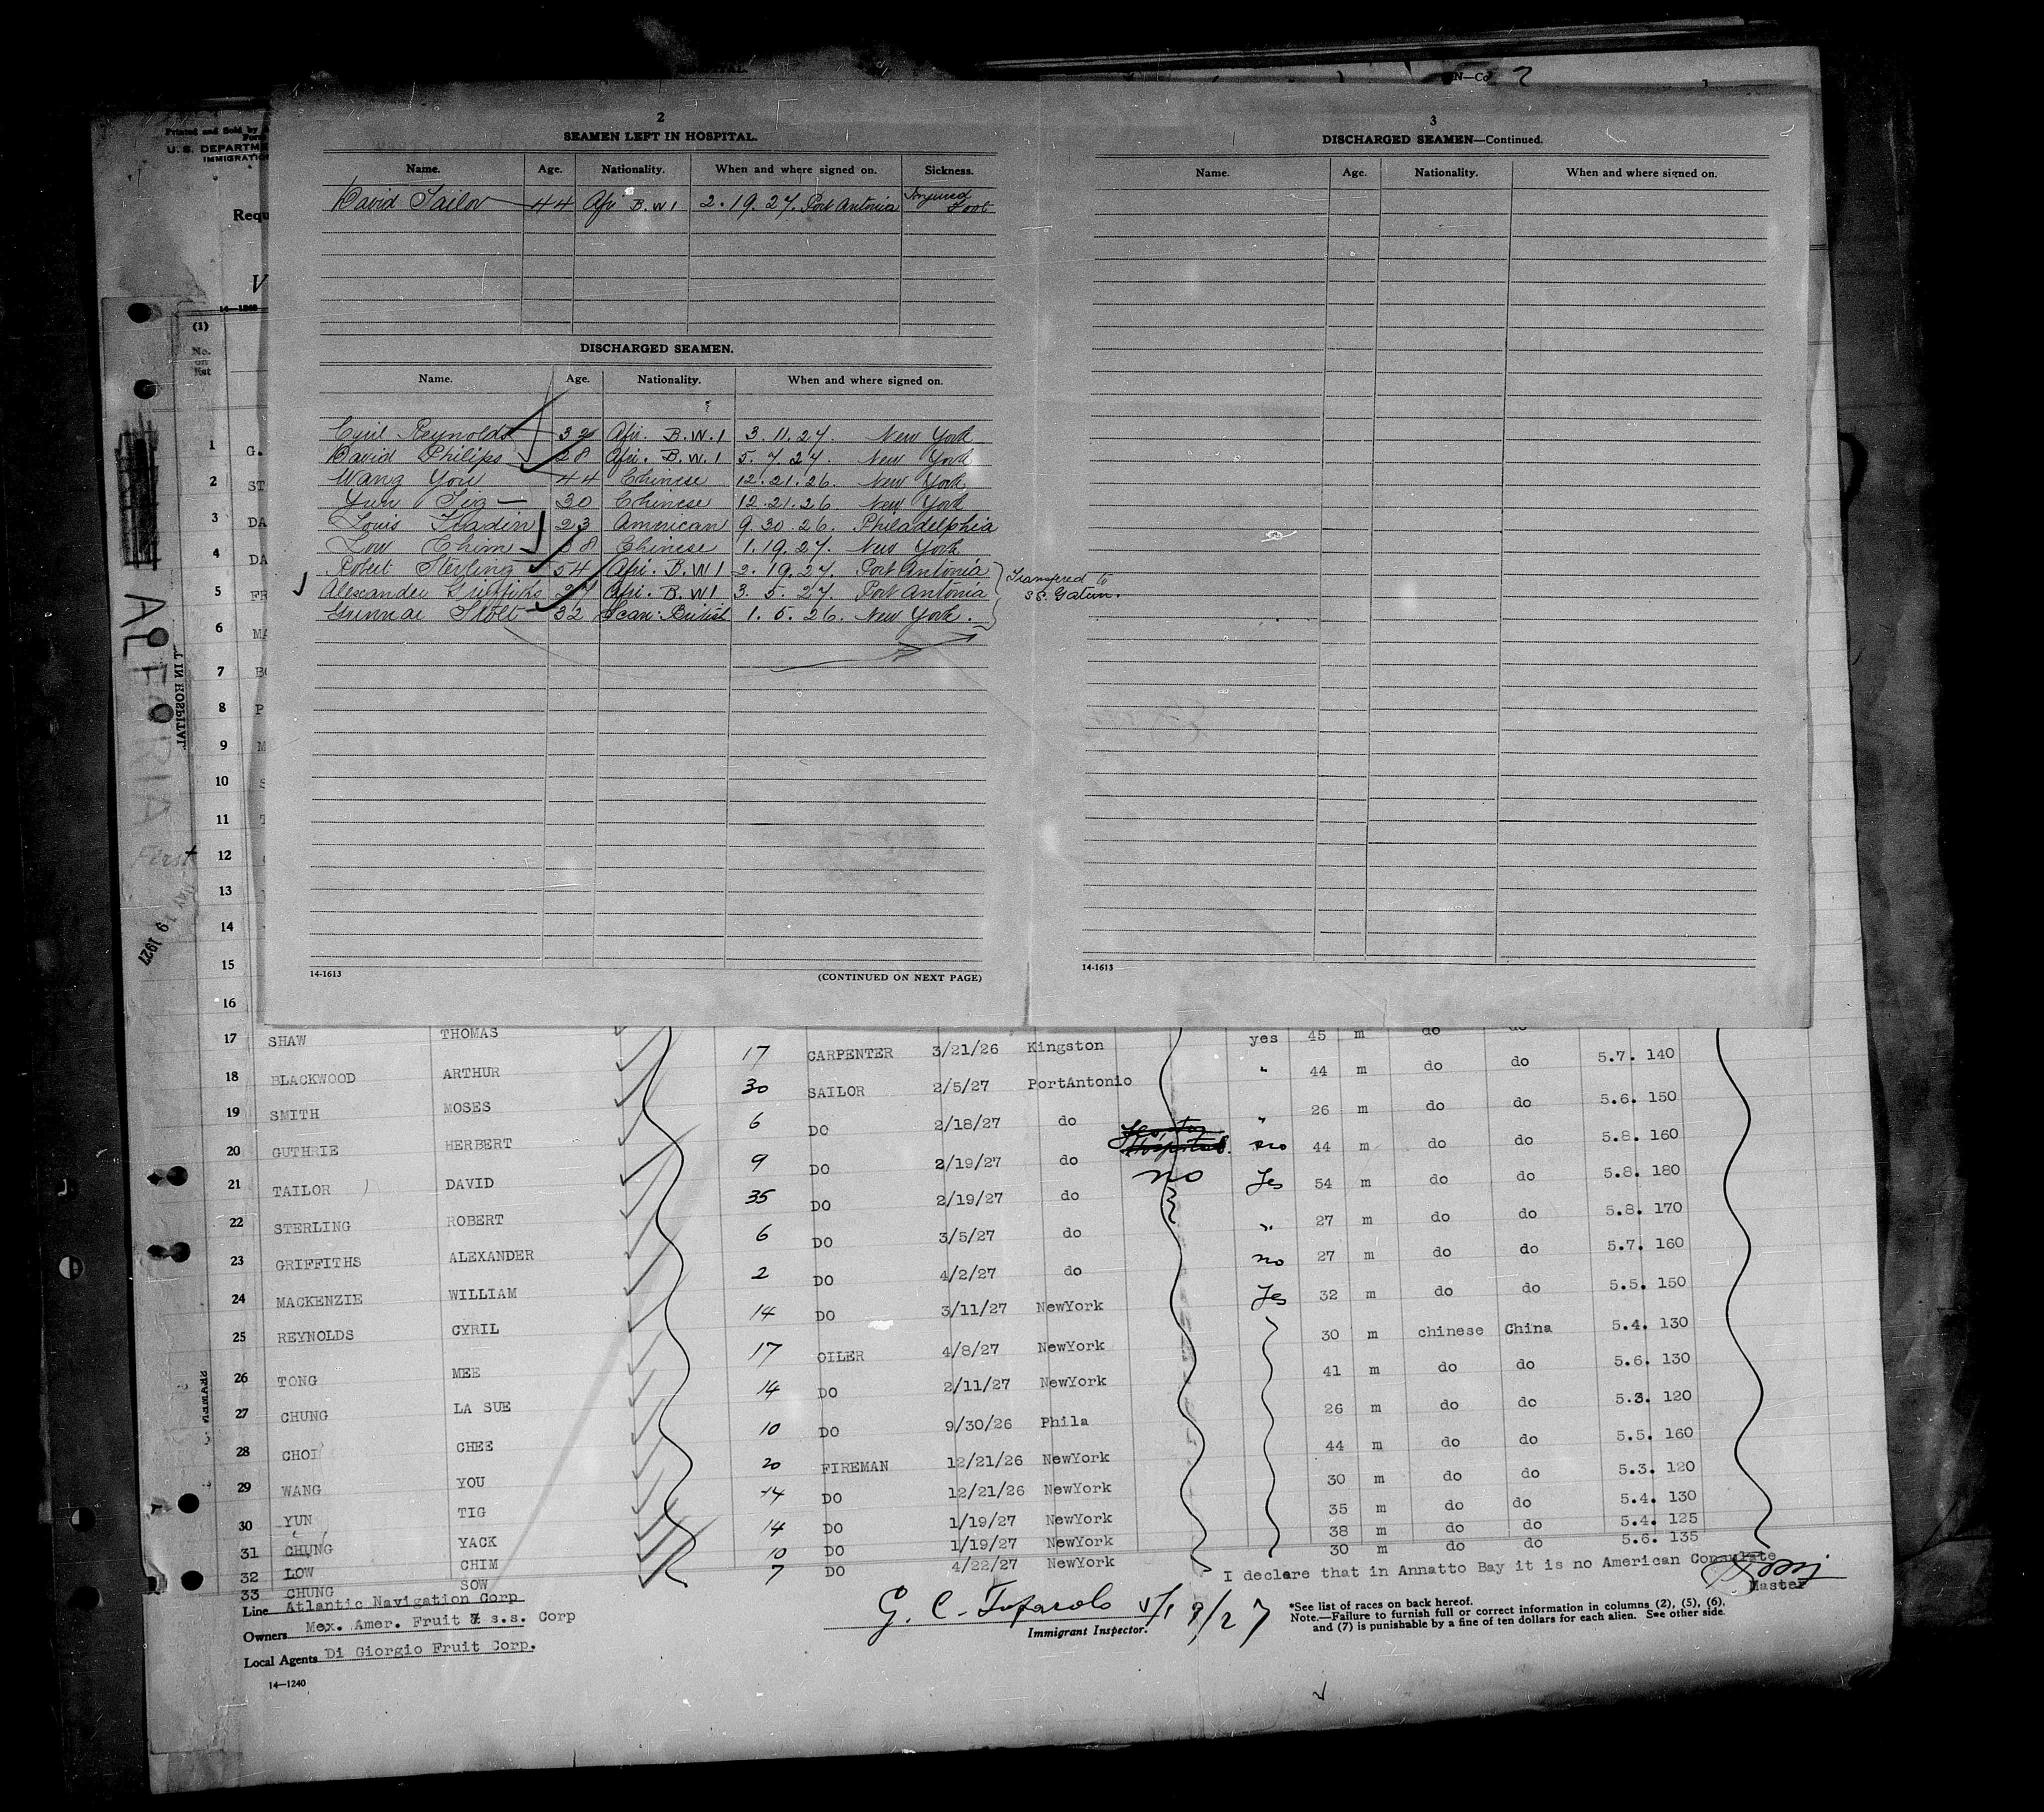 Printed and Sold by
Form
U. S. DEPARTME
IMMIGRATIO
Requ
V
14—1240
(1)
No. on list
ALFORIA
First
MAY 19 1927
2
SEAMEN LEFT IN HOSPITAL.
Name. Age. Nationality. When and where signed on. Sickness.
David Tailor 44 Afri B.W.I 2.19.27. Port Antonia Injured Foot
DISCHARGED SEAMEN.
Name. Age. Nationality. When and where signed on.
Cyril Reynolds 32 Afri. B.W.I 3.11.27. New York
David Philips 28 Afri. B.W.I 5.7.27. New York
Wang You 44 Chinese 12.21.26. New York
Yun Tig — 30 Chinese 12.21.26 New York
Louis 23 American 9.30.26. Philadelphia
Low Chim 38 Chinese 1.19.27. New York
Robert Sterling 54 Afri. B.W.I 2.19.27. Port Antonia
Alexander Griffiths 27 Afri. B.W.I 3.5.27. Port Antonia
Gunnar 32 Scan. British 1.5.26. New York.
Transfered to
SS. Gatun.
14-1613 (CONTINUED ON NEXT PAGE)
3
DISCHARGED SEAMEN—Continued.
Name. Age. Nationality. When and where signed on.
14-1613
1 G.
2 ST
3 DA
4 DA
5 FR
6 MA
7 BO
8 P
9 M
10 S
11
12
13
14
15
16
17 SHAW THOMAS yes 45 m do do
18 BLACKWOOD ARTHUR 17 CARPENTER 3/21/26 Kingston " 44 m do do 5.7. 140
19 SMITH MOSES 30 SAILOR 2/5/27 PortAntonio " 26 m do do 5.6. 150
20 GUTHRIE HERBERT 6 DO 2/18/27 do no 44 m do do 5.8. 160
21 TAILOR DAVID 9 DO 2/19/27 do no Yes 54 m do do 5.8. 180
22 STERLING ROBERT 35 DO 2/19/27 do " 27 m do do 5.8. 170
23 GRIFFITHS ALEXANDER 6 DO 3/5/27 do no 27 m do do 5.7. 160
24 MACKENZIE WILLIAM 2 DO 4/2/27 do Yes 32 m do do 5.5. 150
25 REYNOLDS CYRIL 14 DO 3/11/27 NewYork 30 m chinese China 5.4. 130
26 TONG MEE 17 OILER 4/8/27 NewYork 41 m do do 5.6. 130
27 CHUNG LA SUE 14 DO 2/11/27 NewYork 26 m do do 5.3. 120
28 CHOI CHEE 10 DO 9/30/26 Phila 44 m do do 5.5. 160
29 WANG YOU 20 FIREMAN 12/21/26 NewYork 30 m do do 5.3. 120
30 YUN TIG 14 DO 12/21/26 NewYork 35 m do do 5.4. 130
31 CHUNG YACK 14 DO 1/19/27 NewYork 38 m do do 5.4. 125
32 LOW CHIM 10 DO 1/19/27 NewYork 30 m do do 5.6. 135
33 CHUNG SOW 7 DO 4/22/27 NewYork
I declare that in Annatto Bay it is no American Consulate
Master
Line Atlantic Navigation Corp
Owners Mex. Amer. Fruit & s.s. Corp
Local Agents Di Giorgio Fruit Corp.
14—1240
G. C. 5/19/27
Immigrant Inspector.
*See list of races on back hereof.
Note.—Failure to furnish full or correct information in columns (2), (5), (6),
and (7) is punishable by a fine of ten dollars for each alien. See other side.